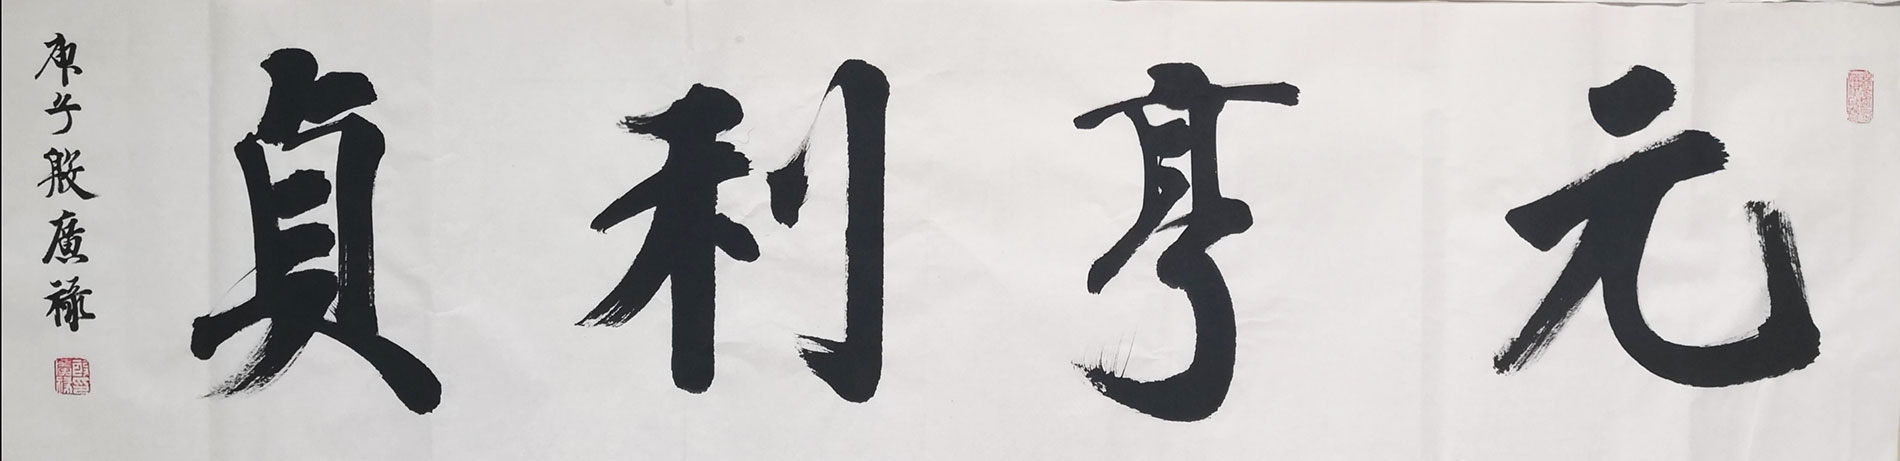 元亨利貞
庚子殷廣祿